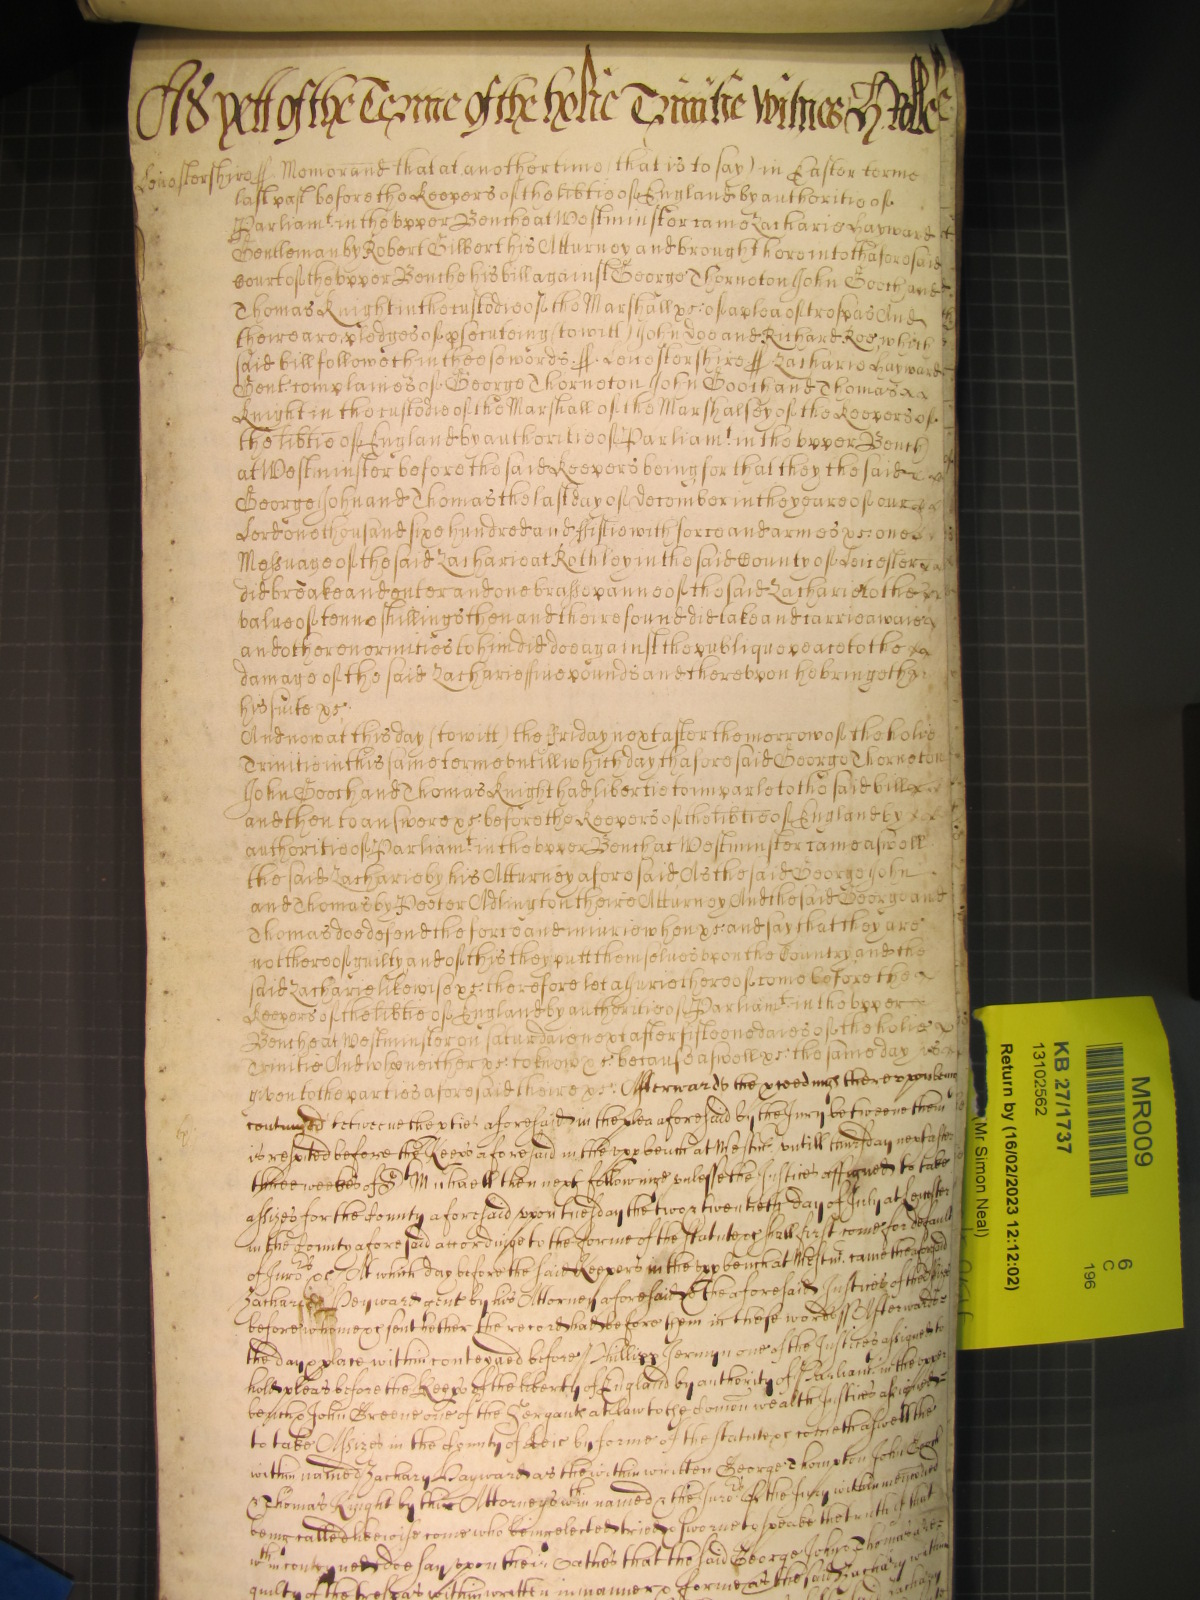 As yett of the Terme of the holie Trinitie Witnes H Rolle
Leicestershire ss Memorand that at another time (that is to say) in Easter terme
last past before the Keepers of the libtie of England by authoritie of
Parliamt. in the vpper Benche at Westminster came Zacharie Hayward
Gentleman by Robert Gilbert his Atturney and brought here into thaforesaid
court of the vpper Benche his bill against George Thorneton John Gooch and
Thomas Knight in the custodie of the Marshall &c: of a plea of trespas And
theire are pledges of psecuteing (to witt) John Doe and Richard Roe, which
said bill followeth in theese words. ss. Leicestershire ss Zacharie Hayward
Gent: complaines of George Thorneton John Gooch and Thomas
Knight in the custodie of the Marshall of the Marshalsey of the Keepers of
the libtie of England by authoritie of Parliamt. in the vpper Bench
at Westminster before the said Keepers being for that they the said
George John and Thomas the last day of december in the yeare of our
Lord one thousand sixe hundred and fiftie with force and armes &c: one
Messuage of the said Zacharie at Rothley in the said County of Leicester
did breake and enter and one brasse panne of the said Zacharie to the
value of tenne shillings then and theire found did take and carrie awaie
and other enormities to him did doe against the publique peace to the
damage of the said Zacharie ffive pounds and therevpon he bringeth
his suite &c:
And now at this day (to witt) the Friday next after the morrow of the holie
Trinitie in this same terme vntill which day thaforesaid George Thorneton
John Gooch and Thomas Knight had libertie to imparle to the said bill
and then to answere &c: before the Keepers of the libtie of England by
authoritie of Parliamt. in the vpper Bench at Westminster came aswell
the said Zacharie by his Atturney aforesaid As the said George John
and Thomas by Peeter Adlington theire Atturney And the said George and
Thomas doe defend the force and iniurie when &c: and say that they are
not thereof guilty and of this they putt themselues vpon the Country and the
said Zacharie likewise &c: therefore let a Jurie thereof come before the
Keepers of the libtie of England by authoritie of Parliamt. in the vpper
Bench at Westminster on saturdaie next after fifteene daies of the holie
Trinitie And who neither &c: to know &c: because aswell &c: the same day is
given to the parties aforesaid theire &c: Afterwards the pceedings therevpon being
continued betweene the pties aforesaid in the plea aforesaid by the Jury betweene them
is respited before the Keeps aforesaid in the vpp bench at Westmr. vntill tuesday next after
three weekes of St Michaell then next following vnlesse the Justices assigned to take
assizes for the County aforesaid vpon tuesday the two & twentieth day of July at Leicster
in the County aforesaid according to the forme of the statute &c shall first come for default
of Jurors &c At which day before the said Keepers in the vpp bench at Westmr. came the aforesaid
Zacharie Heyward gent by his Attorney aforesaid & the aforesaid Justices of the Assizes
before whome &c sent hether the record had before them in these words ss Afterwards
the day & place within conteyned before Phillipp Jermyn one of the Justices assigned to
hold pleas before the Keeps of the liberty of England by authority of Parliamt. in the vpper
bench & John Greene one of the Sergeants at law to the Comon wealth Justices assigned
to take Assizes in the County of Leic by forme of the statute &c cometh aswell the
within named Zachary Hayward as the within written George Thompton John Gooch
& Thomas Knight by their Attorneys wthin named & the Jurors of the Jury within mencioned
being called likewise come who being elected tried & sworne to speake the truth of that
wthin conteyned doe say vpon their Oathes that the said George John & Thomas are
guilty of the trespas within written in manner & forme as the said Zachary within
MR009
KB 27/1737
13102562
Return by (16/02/2023 12:12:02)
Mr Simon Neal)
6
C
196